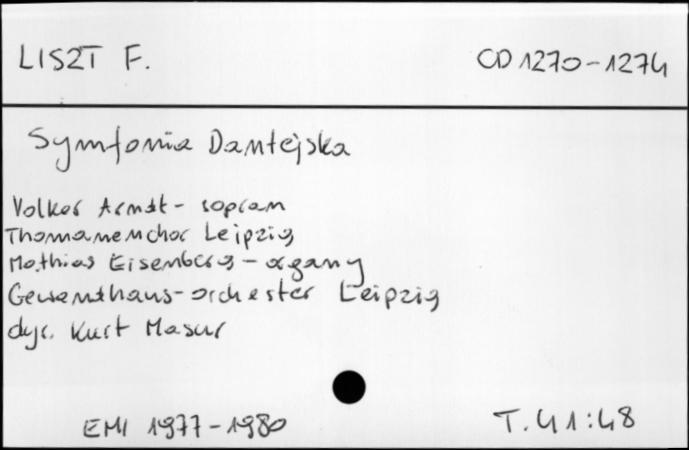 LISZT F. CD 1270-1274
Symfonia Dantejska
Volker Arndt - sopran
Thomanenchor Leipzig
Mathias Eisenberg - organy
Gewandhaus-orchester Leipzig
dyr. Kurt Masur
EMI 1977-1980 T. 41:48